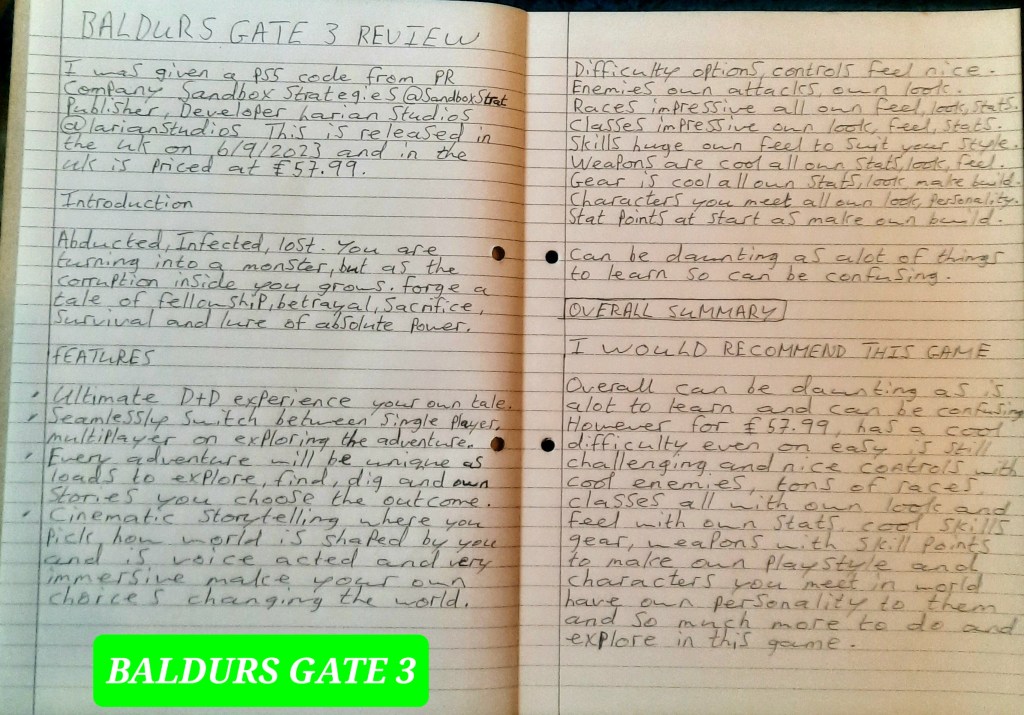 BALDURS GATE 3 REVIEW
I was given a PS5 code from PR
Company Sandbox Strategies @SandboxStrat
Publisher, Developer Larian Studios
@larianstudios. This is released in
the uk on 6/9/2023 and in the
uk is priced at £57.99.
Introduction
Abducted, Infected, lost. You are
turning into a monster, but as the
corruption inside you grows. forge a
tale of fellowship, betrayal, Sacrifice,
Survival and lure of absolute power.
FEATURES
• Ultimate D+D experience your own tale.
• Seamlessly switch between single player,
multiplayer on exploring the adventure.
• Every adventure will be unique as
loads to explore, find, dig and own
stories you choose the outcome.
• Cinematic Storytelling, where you
pick, how world is shaped by you
and is voice acted and very
immersive make your own
choices changing the world.
BALDURS GATE 3
Difficulty options, controls feel nice.
Enemies own attacks, own look.
Races impressive all own feel, look, stats.
Classes impressive own look, feel, stats.
Skills huge own feel to suit your style.
Weapons are cool all own stats, look, feel.
Gear is cool all own stats, look, make build.
Characters you meet all own look, personality.
Stat points at start as make own build.
• Can be daunting as alot of things
to learn so can be confusing.
OVERALL SUMMARY
I WOULD RECOMMEND THIS GAME
Overall can be daunting as is
alot to learn and can be confusing
However for £57.99, has a cool
difficulty even on easy is still
challenging and nice controls with
cool enemies, tons of races,
classes all with own look and
feel with own stats, cool skills
gear, weapons with skill points
to make own playstyle and
characters you meet in world
have own personality to them
and so much more to do and
explore in this game.